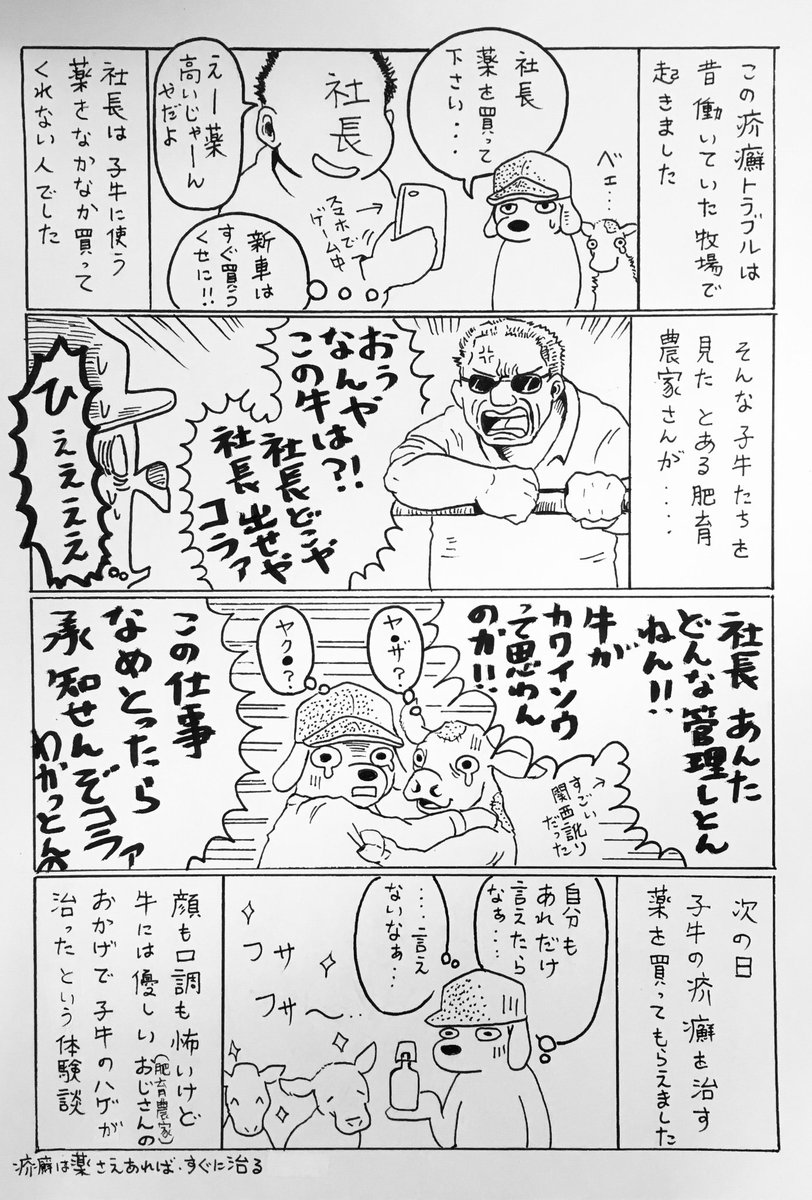 この疥癬トラブルは
昔働いていた牧場で
起きました
ベェ…
社長
薬を買って
下さい…
社長
えー薬
高いじゃーん
やだよ
スマホで
ゲーム中
新車は
すぐ買う
くせに!!
社長は子牛に使う
薬をなかなか買って
くれない人でした
そんな子牛たちを
見たとある肥育
農家さんが….
おぅ
なんや
この牛は?!!
社長どこや
社長出せや
コラァ
ひぇぇぇぇ
社長あんた
どんな管理しとん
ねん!!
牛が
カワイソウ
って思わん
のか!!
すごい
関西訛り
だった
ヤ●ザ?
ヤク●?
この仕事
なめとったら
承知せんぞコラァ
わかっとんの
次の日
子牛の疥癬を治す
薬を買ってもらえました
自分も
あれだけ
言えたら
なぁ…
….言え
ないなぁ…
フサ
フサ〜…
顔も口調も怖いけど
牛には優しいおじさんの
(肥育農家)
おかげで子牛のハゲが
治ったという体験談
疥癬は薬さえあれば、すぐに治る